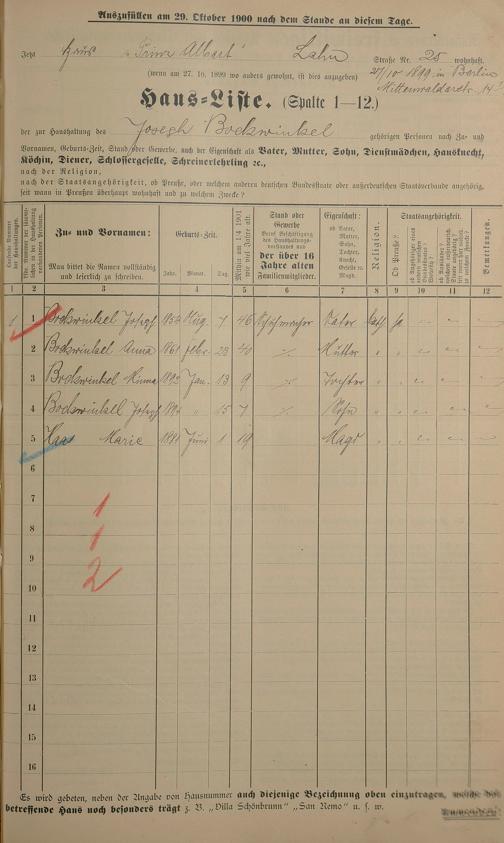 Auszufüllen am 29. Oktober 1900 nach dem Stande an diesem Tage.
Jetzt Haus "Prinz Albert" Lahn Straße Nr. 25 wohnhaft.
(wenn am 27. 10. 1899 wo anders gewohnt, ist dies anzugeben) 27/10 1899 in Berlin
Mittenwalderstr.
Haus-Liste. (Spalte 1—12.)
der zur Haushaltung des Joseph Bockwinkel gehörigen Personen nach Zu- und
Vornamen, Geburts-Zeit, Stand oder Gewerbe, auch nach der Eigenschaft als Vater, Mutter, Sohn, Dienstmädchen, Hausknecht,
Köchin, Diener, Schlossergeselle, Schreinerlehrling ꝛc.,
nach der Religion,
nach der Staatsangehörigkeit, ob Preuße, oder welchem anderen deutschen Bundesstaate oder außerdeutschen Staatsverbande angehörig,
seit wann in Preußen überhaupt wohnhaft und zu welchem Zwecke?
Laufende Nummer der Haushaltungen.
Lfde. Nummer der sämmtlichen in der Haushaltung vorhandenen Personen.
Zu- und Vornamen:
Man bittet die Namen vollständig und leserlich zu schreiben.
Geburts-Zeit.
Jahr. Monat. Tag.
Mithin am 1./4 1901 wie viel Jahre alt.
Stand oder Gewerbe
Beruf Beschäftigung des Haushaltungsvorstandes und
der über 16 Jahre alten
Familienmitglieder.
Eigenschaft:
ob Vater, Mutter, Sohn, Tochter, Knecht, Geselle, Magd
Religion.
Staatsangehörigkeit.
Ob Preuße?
Bemerkungen.
1 2 3 4 5 6 7 8 9 10 11 12
1 1 Bockwinkel Joseph 1854 Aug. 7 46 Vater kath ja
2 Bockwinkel Anna 1861 Febr. 23 40 Mutter
3 Bockwinkel Minna 1892 Jan. 13 9 Tochter
4 Bockwinkel Joseph 1894 " 15 7 Sohn
5 Haas Marie 1881 Juni 1 19 Magd
6
7 1
8 1
9
10 2
11
12
13
14
15
16
Es wird gebeten, neben der Angabe von Hausnummer auch diejenige Bezeichnung oben einzutragen, welche das
betreffende Haus noch besonders trägt z. B. „Villa Schönbrunn" „San Remo" u. s. w.